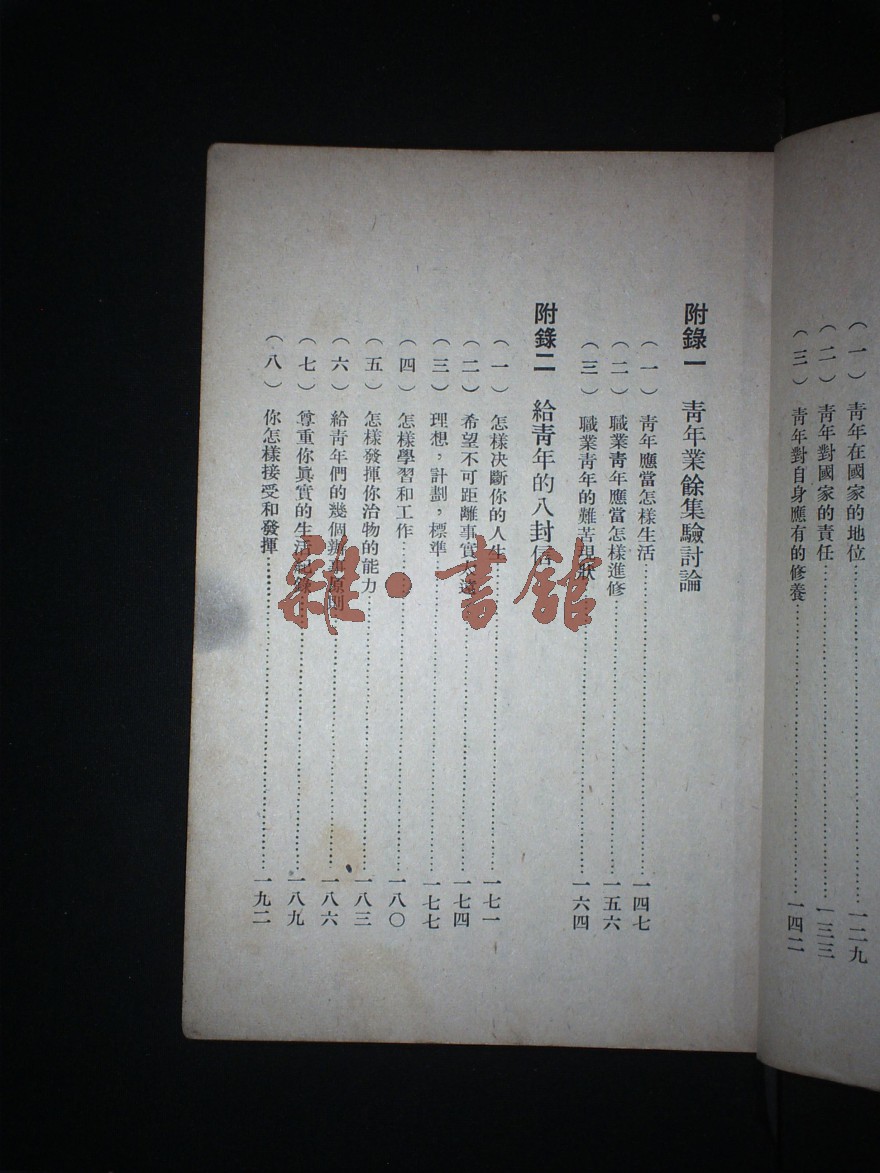 （一）靑年在國家的地位……一二九
（二）靑年對國家的責任……一三三
（三）靑年對自身應有的修養……一四二
附錄一　靑年業餘集驗討論
（一）靑年應當怎樣生活……一四七
（二）職業靑年應當怎樣進修……一五六
（三）職業靑年的難苦現狀……一六四
附錄二　給靑年的八封信
（一）怎樣決斷你的人生……一七一
（二）希望不可距離事實太遠……一七四
（三）理想，計劃，標準……一七七
（四）怎樣學習和工作……一八〇
（五）怎樣發揮你治物的能力……一八三
（六）給靑年們的幾個辦事原則……一八六
（七）尊重你眞實的生活紀錄……一八九
（八）你怎樣接受和發揮……一九二
雜·書館